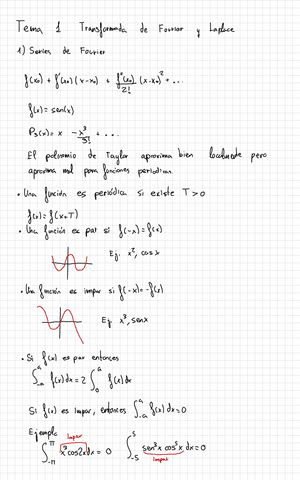 Tema 1 Transformada de Fourier y Laplace
1) Series de Fourier
f(x₀) + f'(x₀)(x-x₀) + f''(x₀)/2! (x-x₀)² + ...
f(x) = sen(x)
P₃(x) = x - x³/3! + ...
El polinomio de Taylor aproxima bien localmente pero
aproxima mal para funciones periodicas
• Una función es periódica si existe T>0
f(x) = f(x+T)
• Una función es par si f(-x) = f(x)
Ej. x², cos x
• Una función es impar si f(-x) = -f(x)
Ej x³, sen x
• Si f(x) es par entonces
∫₋ₐᵃ f(x) dx = 2 ∫₀ᵃ f(x) dx
Si f(x) es impar, entonces ∫₋ₐᵃ f(x) dx = 0
Ejemplo
impar
∫ from -π to π x³ cos 2x dx = 0 ∫ from -5 to 5 sen³x cos⁵x dx = 0
impar